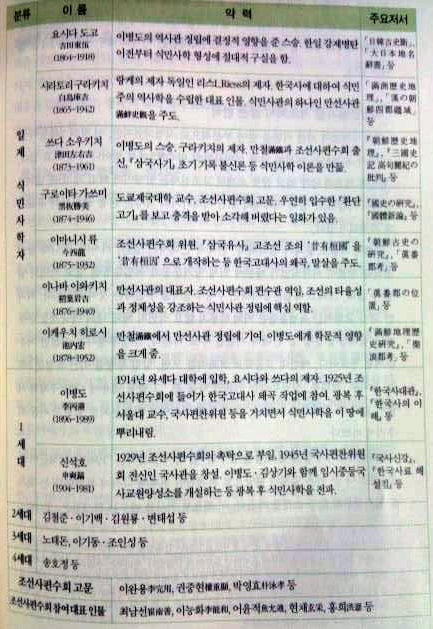 분류
이름
약력
주요저서
일제 식민사학자
요시다 도고
吉田東伍
(1864~1918)
이병도의 역사관 정립에 결정적 영향을 준 스승. 한일 강제병탄
이전부터 식민사학 형성에 절대적 구실을 함.
『日韓古史斷』,
『大日本地名
辭書』 등
시라토리 구라키치
白鳥庫吉
(1865~1942)
랑케의 제자 독일인 리스L. Riess의 제자. 한국사에 대하여 식민
주의 역사학을 수립한 대표 인물. 식민사관의 하나인 만선사관
滿鮮史觀을 주도.
『滿洲歷史地
理』, 『漢の朝
鮮四郡疆域』
등
쓰다 소우키치
津田左右吉
(1873~1961)
이병도의 스승. 구라키치의 제자. 만철滿鐵과 조선사편수회 출
신, 『삼국사기』 초기 기록 불신론 등 식민사학 이론을 만듦.
『朝鮮歷史地
理』, 『三國史
記 高句麗紀の
批判』 등
구로이타 가쓰미
黑板勝美
(1874~1946)
도쿄제국대학 교수, 조선사편수회 고문. 우연히 입수한 『환단
고기』를 보고 충격을 받아 소각해 버렸다는 일화가 있음.
『國史の硏究』,
『國體新論』 등
이마니시 류
今西龍
(1875~1932)
조선사편수회 위원. 『삼국유사』 고조선 조의 '昔有桓國'을
'昔有桓因'으로 개작하는 등 한국고대사의 왜곡, 말살을 주도.
『朝鮮古史の
硏究』, 『眞番
郡考』 등
이나바 이와키치
稻葉岩吉
(1876~1940)
만선사관의 대표자. 조선사편수회 편수관 역임. 조선의 타율성
과 정체성을 강조하는 식민사관 정립에 핵심 역할.
『眞番郡の位
置』 등
이케우치 히로시
池內宏
(1878~1952)
만철滿鐵에서 만선사관 정립에 기여. 이병도에게 학문적 영향
을 크게 줌.
『滿鮮地理歷
史硏究』, 『樂
浪郡考』 등
1세대
이병도
李丙燾
(1896~1989)
1914년 와세다 대학에 입학, 요시다와 쓰다의 제자. 1925년 조
선사편수회에 들어가 한국고대사 왜곡 작업에 참여. 광복 후
서울대 교수, 국사편찬위원 등을 거치면서 식민사학을 이 땅에
뿌리내림.
『한국사대관』,
『한국사의 이
해』 등
신석호
申奭鎬
(1904~1981)
1929년 조선사편수회의 촉탁으로 부임. 1945년 국사편찬위원
회 전신인 국사관을 창설. 이병도·김상기와 함께 임시중등국
사교원양성소를 개설하는 등 광복 후 식민사학을 전파.
『국사신강』,
『한국사료 해
설집』 등
2세대
김철준·이기백·김원룡·변태섭 등
3세대
노태돈, 이기동·조인성 등
4세대
송호정 등
조선사편수회 고문
이완용李完用, 권중현權重顯, 박영효朴泳孝 등
조선사편수회 참여 대표 인물
최남선崔南善, 이능화李能和, 어윤적魚允迪, 현채玄采, 홍희洪憙 등